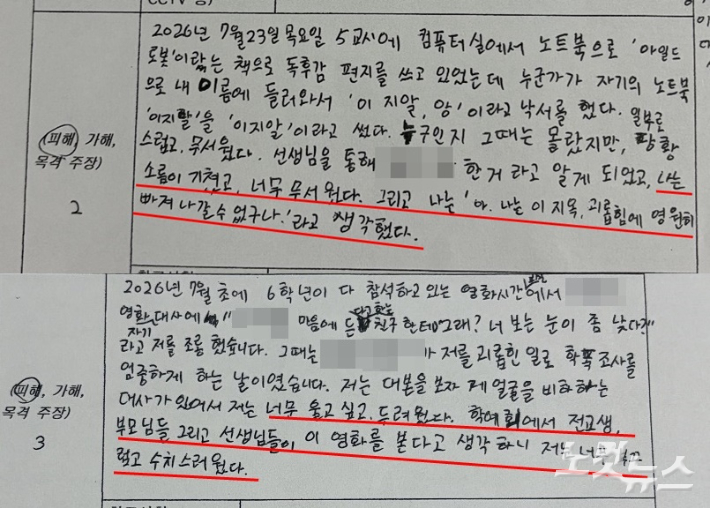 2026년 7월23일 목요일 5교시에 컴퓨터실에서 노트북으로 '와일드
로봇'이랐는 책으로 독후감 편지를 쓰고 있었는데 누군가가 자기의 노트북
으로 내 이름에 들러와서 '이 지알, 앙'이라고 낙서를 했다. 일부로
'이지할'을 '이지알'이라고 썼다. 누구인지 그때는 몰랐지만, 당황
스럽고, 무서웠다. 선생님을 통해 한거 라고 알게 되었고, 나는
소름이 기쳤고, 너무 무서웠다. 그리고 나는 '아. 나는 이 지옥, 괴롭힘에 영원히
빠져 나갈수 없구나.'라고 생각했다.
(피해, 가해,
목격 주장)
2
2026년 7월 초에 6학년이 다 참석하고 있는 영화시간에서
영화 대사에 " 마음에 든다고 하는 친구한테 "그래? 너 보는 눈이 좀 낮다?"
라고 자기 저를 조롱했습니다. 그때는 가 저를 괴롭힌 일로 학폭 조사를
엄중하게 하는 날이였습니다. 저는 대본을 보자 제 얼굴을 비하하는
대사가 있어서 저는 너무 울고 싶고, 두려웠다. 학예회에서 전교생,
부모님들 그리고 선생님들이 이 영화를 본다고 생각하니 저는 너무
럽고 수치스러웠다.
(피해, 가해,
목격 주장)
3
노컷뉴스